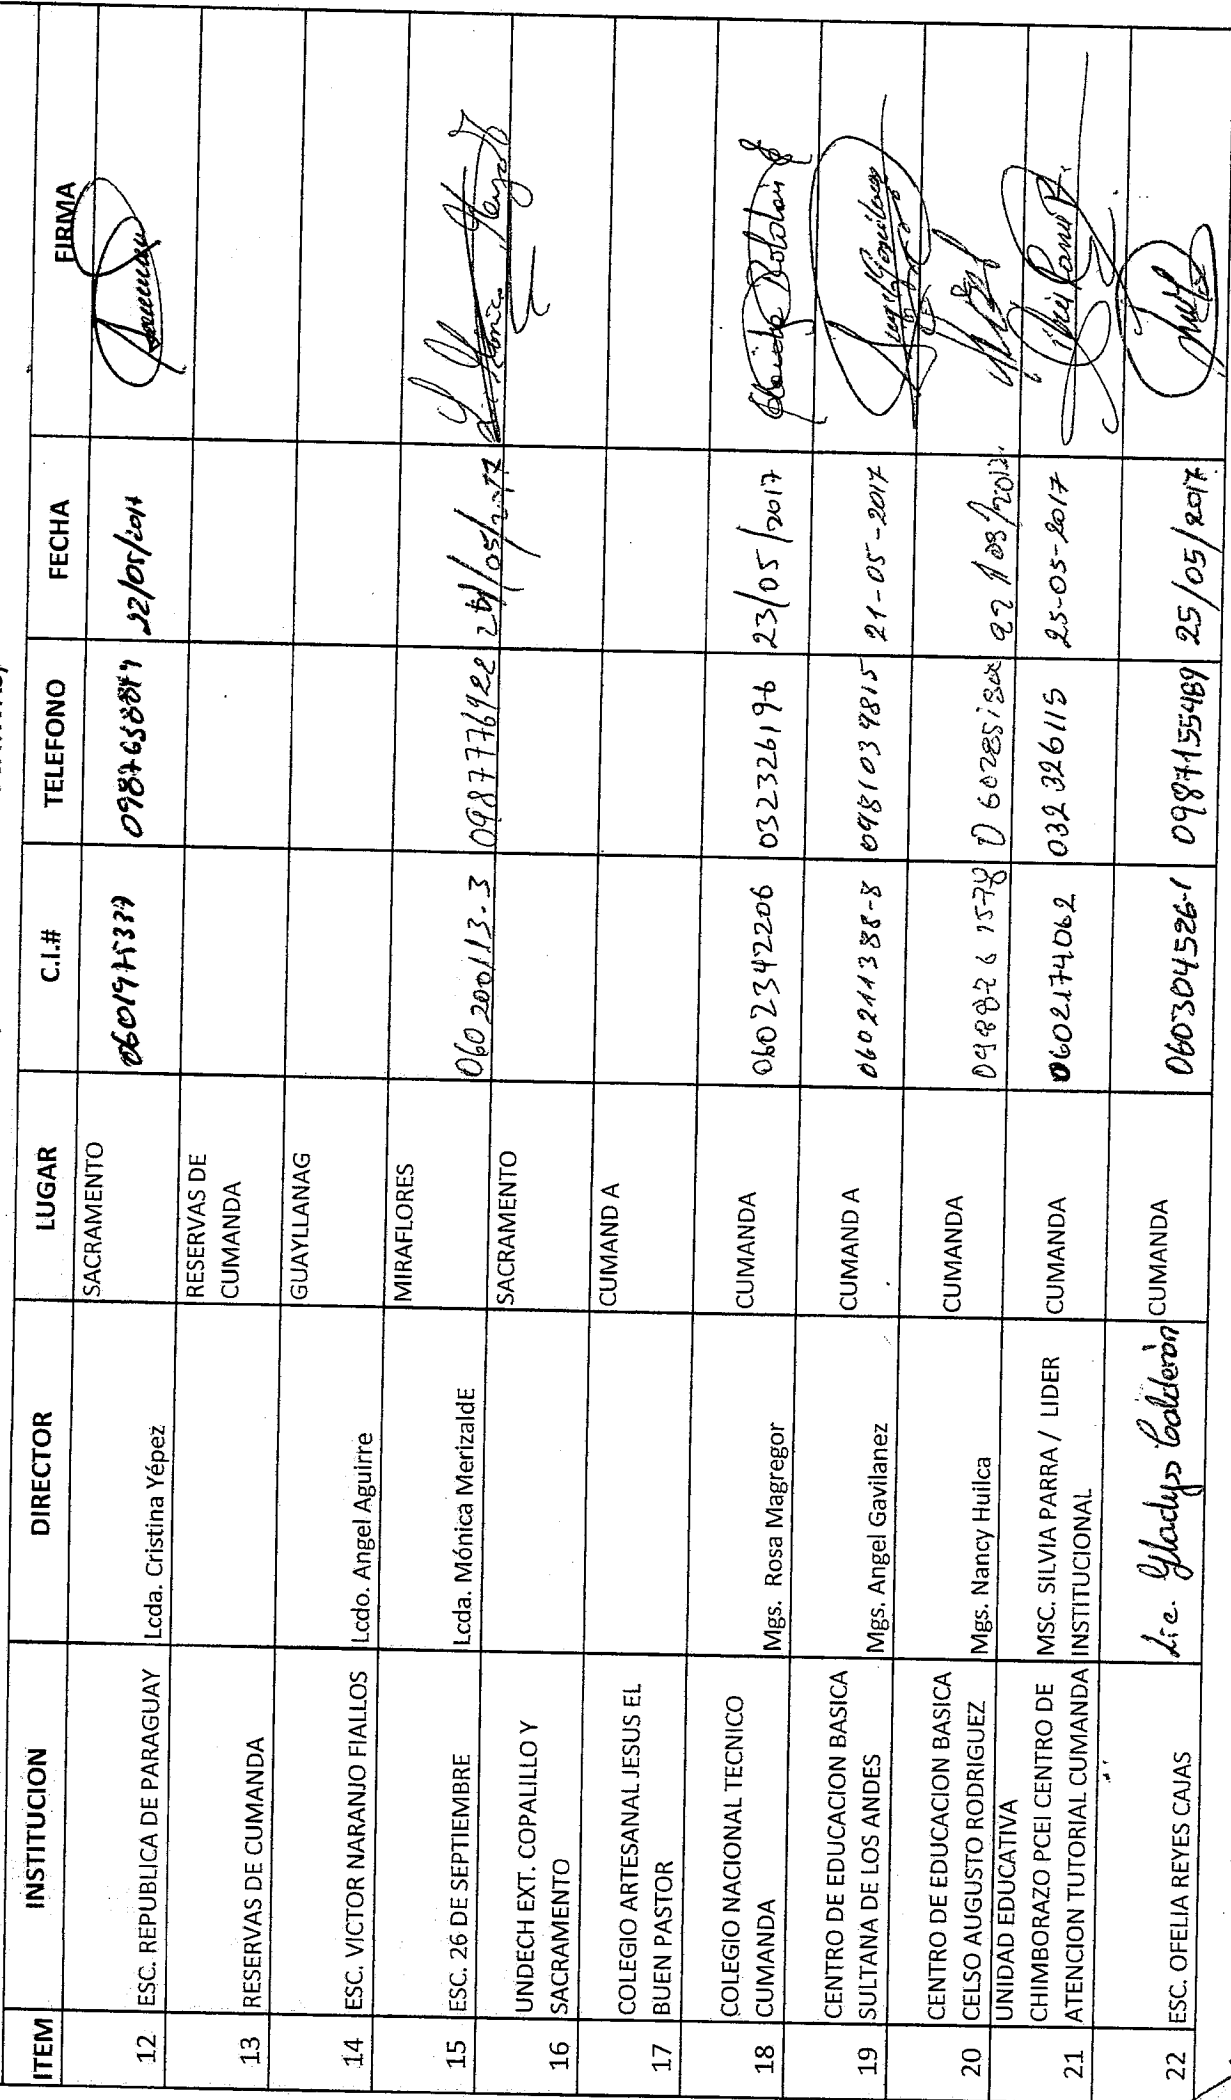 ITEM INSTITUCION DIRECTOR LUGAR C.I.# TELEFONO FECHA FIRMA
12 ESC. REPUBLICA DE PARAGUAY Lcda. Cristina Yépez SACRAMENTO 22/05/2017
13 RESERVAS DE CUMANDA RESERVAS DE
CUMANDA
14 ESC. VICTOR NARANJO FIALLOS Lcdo. Angel Aguirre GUAYLLANAG
15 ESC. 26 DE SEPTIEMBRE Lcda. Mónica MerizaldE MIRAFLORES 060200113-3 0987776922
16 UNDECH EXT. COPALILLO Y
SACRAMENTO SACRAMENTO
17 COLEGIO ARTESANAL JESUS EL
BUEN PASTOR CUMAND A
18 COLEGIO NACIONAL TECNICO
CUMANDA Mgs. Rosa Magregor CUMANDA 0602342206 032326196 23/05/2017
19 CENTRO DE EDUCACION BASICA
SULTANA DE LOS ANDES Mgs. Angel Gavilanez CUMAND A 060211388-8 0981039815 21-05-2017
20 CENTRO DE EDUCACION BASICA
CELSO AUGUSTO RODRIGUEZ Mgs. Nancy Huilca CUMANDA
21 UNIDAD EDUCATIVA
CHIMBORAZO PCEI CENTRO DE
ATENCION TUTORIAL CUMANDA MSC. SILVIA PARRA / LIDER
INSTITUCIONAL CUMANDA 0602174062 032 326115 25-05-2017
22 ESC. OFELIA REYES CAJAS Lic. Gladys Calderón CUMANDA 060304526-1 0987155489 25/05/2017